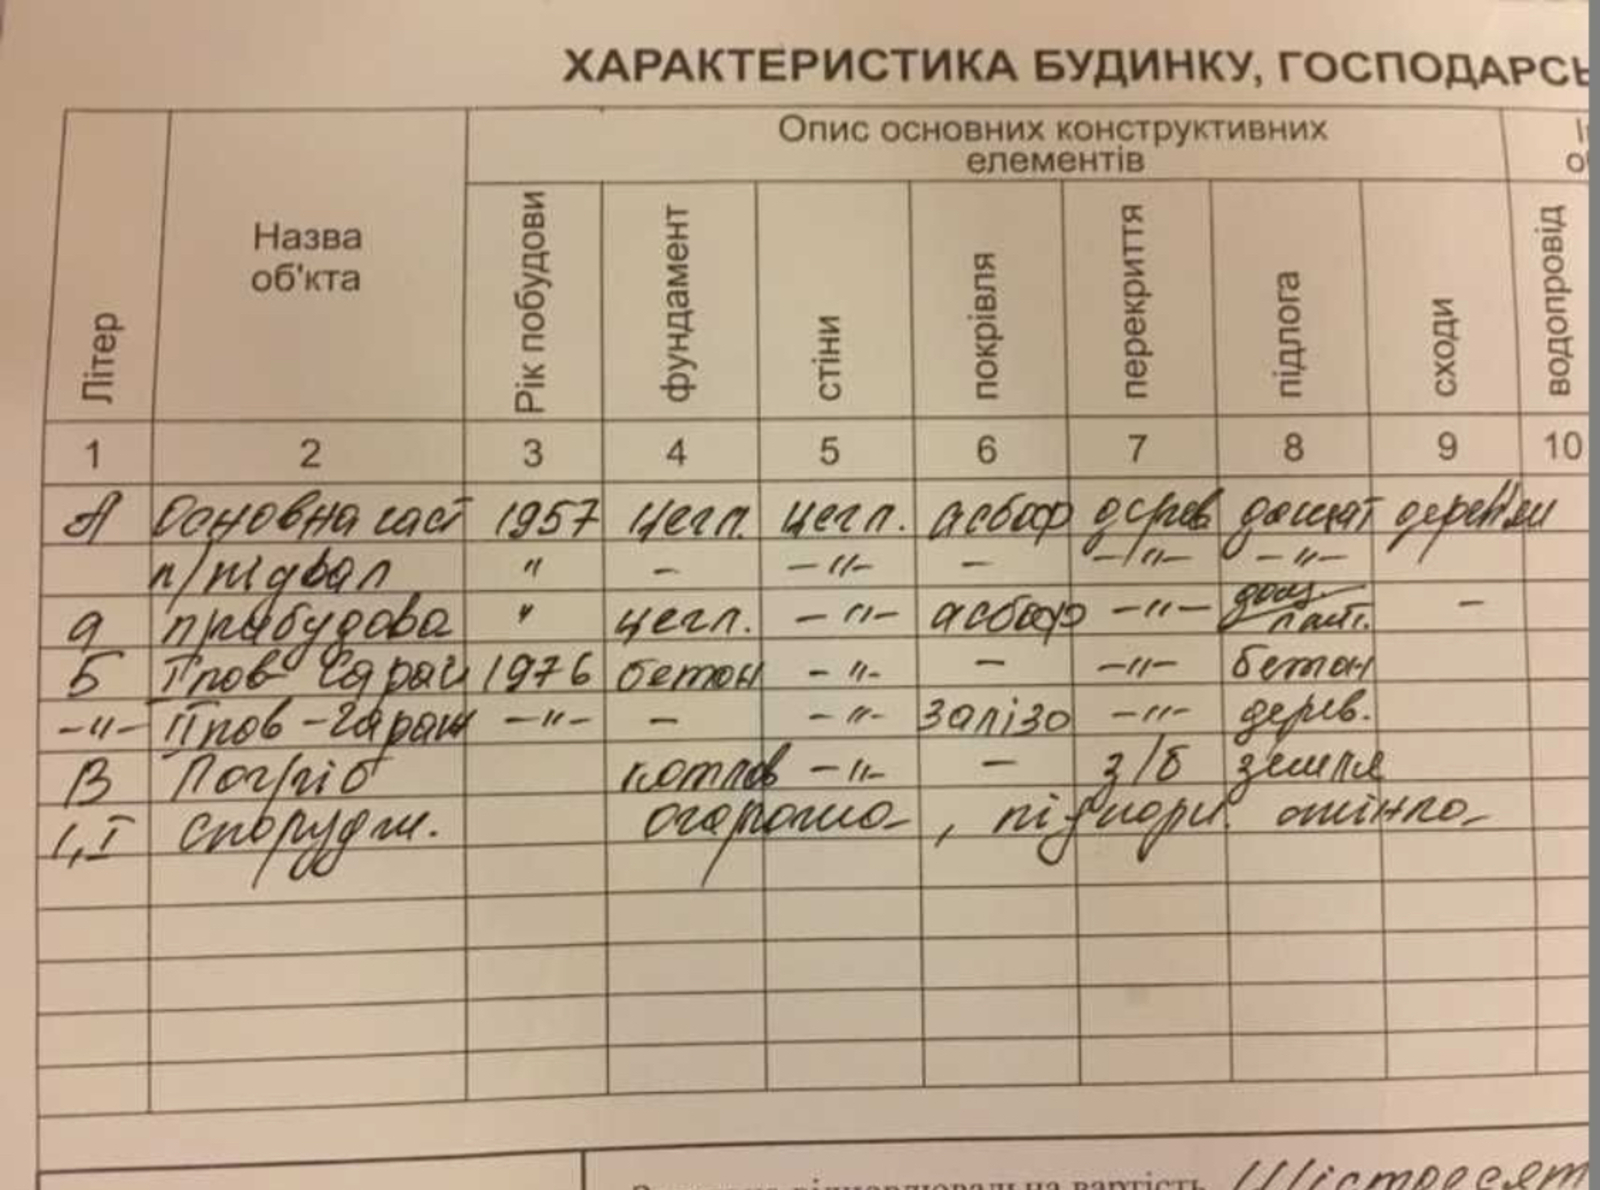 ХАРАКТЕРИСТИКА БУДИНКУ, ГОСПОДАРСЬ
Опис основних конструктивних
елементів
Літер
Назва
об'кта
Рік побудови
фундамент
стіни
покрівля
перекриття
підлога
сходи
водопровід
1 2 3 4 5 6 7 8 9 10
А Основна част 1957 цегл. цегл. асбоф дерев дощат дерев'ян
п/підвал " - -"- - -"- -"-
а прибудова " цегл. -"- асбоф -"- дощ. -
Б І пов Сарай 1976 бетон -"- - -"- бетон
-"- ІІ пов - Гараж -"- - -"- залізо -"- дерев.
В Погріб котлов -"- - з/б земля
1,І споруди. огорожа,